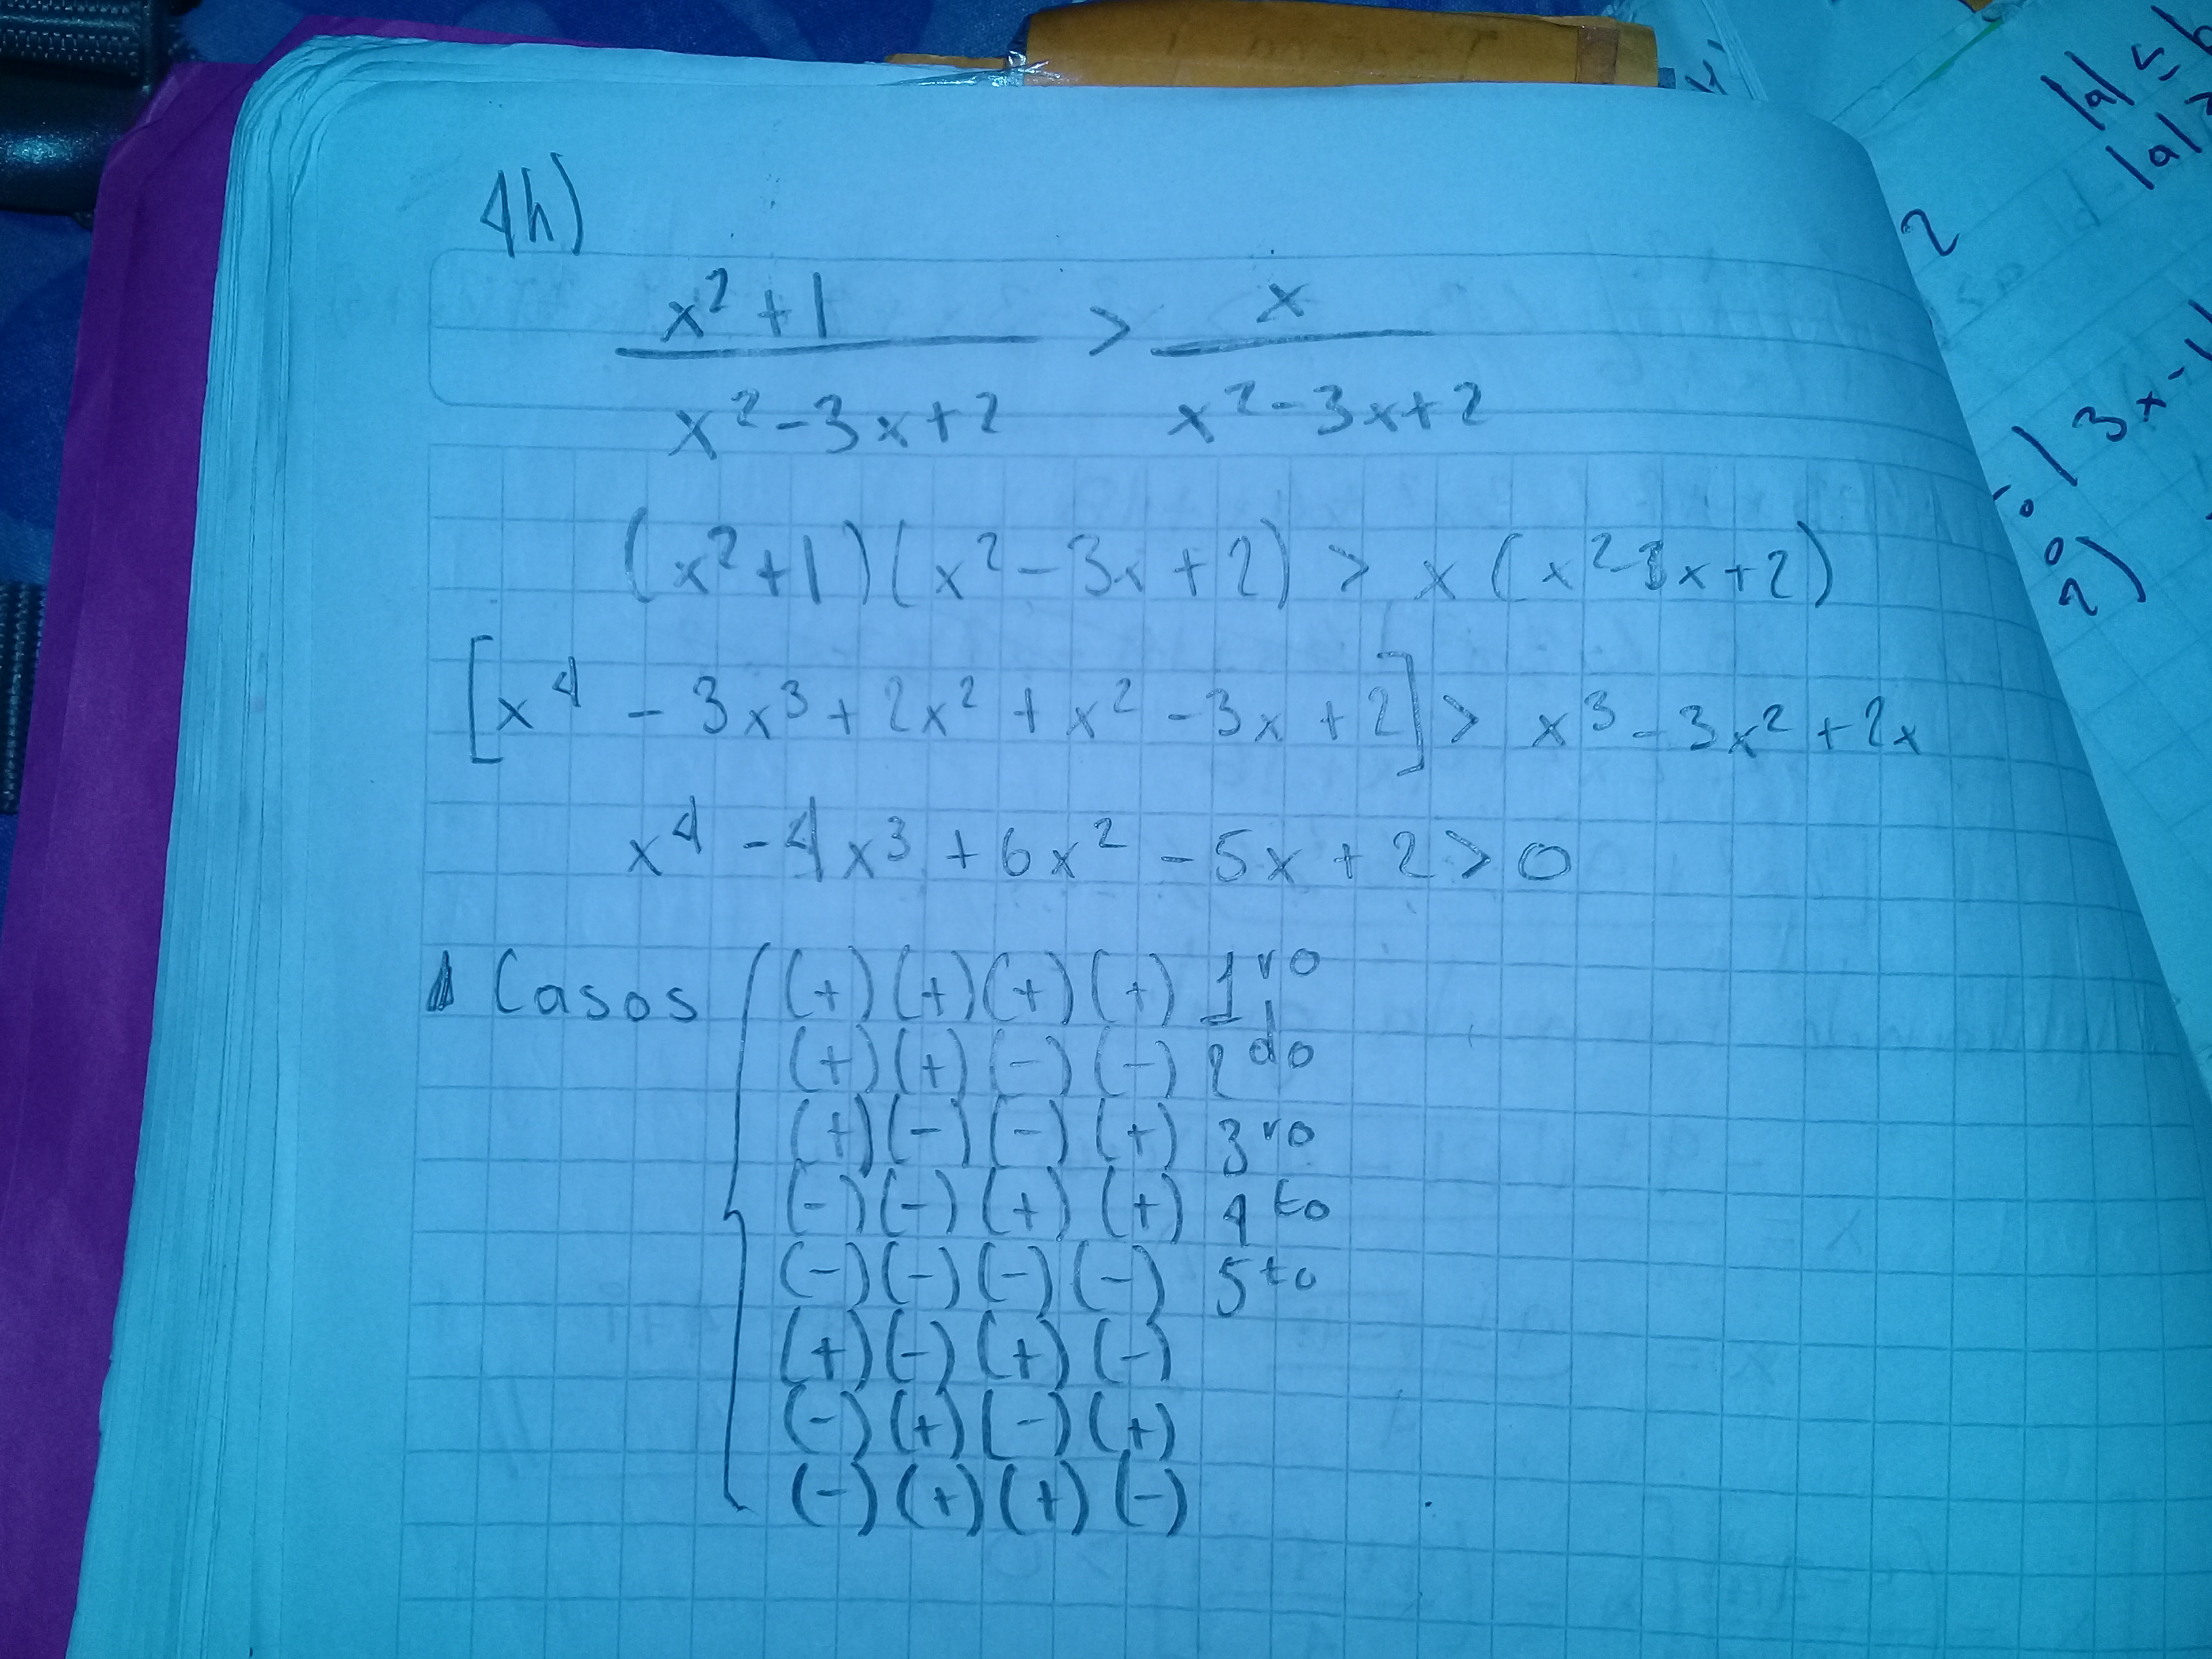 4h)
x² + 1 / x² - 3x + 2 > x / x² - 3x + 2
(x² + 1)(x² - 3x + 2) > x(x² - 3x + 2)
[x⁴ - 3x³ + 2x² + x² - 3x + 2] > x³ - 3x² + 2x
x⁴ - 4x³ + 6x² - 5x + 2 > 0
Casos { (+)(+)(+)(+) 1ro
(+)(+)(-)(-) 2do
(+)(-)(-)(+) 3ro
(-)(-)(+)(+) 4to
(-)(-)(-)(-) 5to
(+)(-)(+)(-)
(-)(+)(-)(+)
(-)(+)(+)(-)
2
|a|
|a|
| 3x -
2)